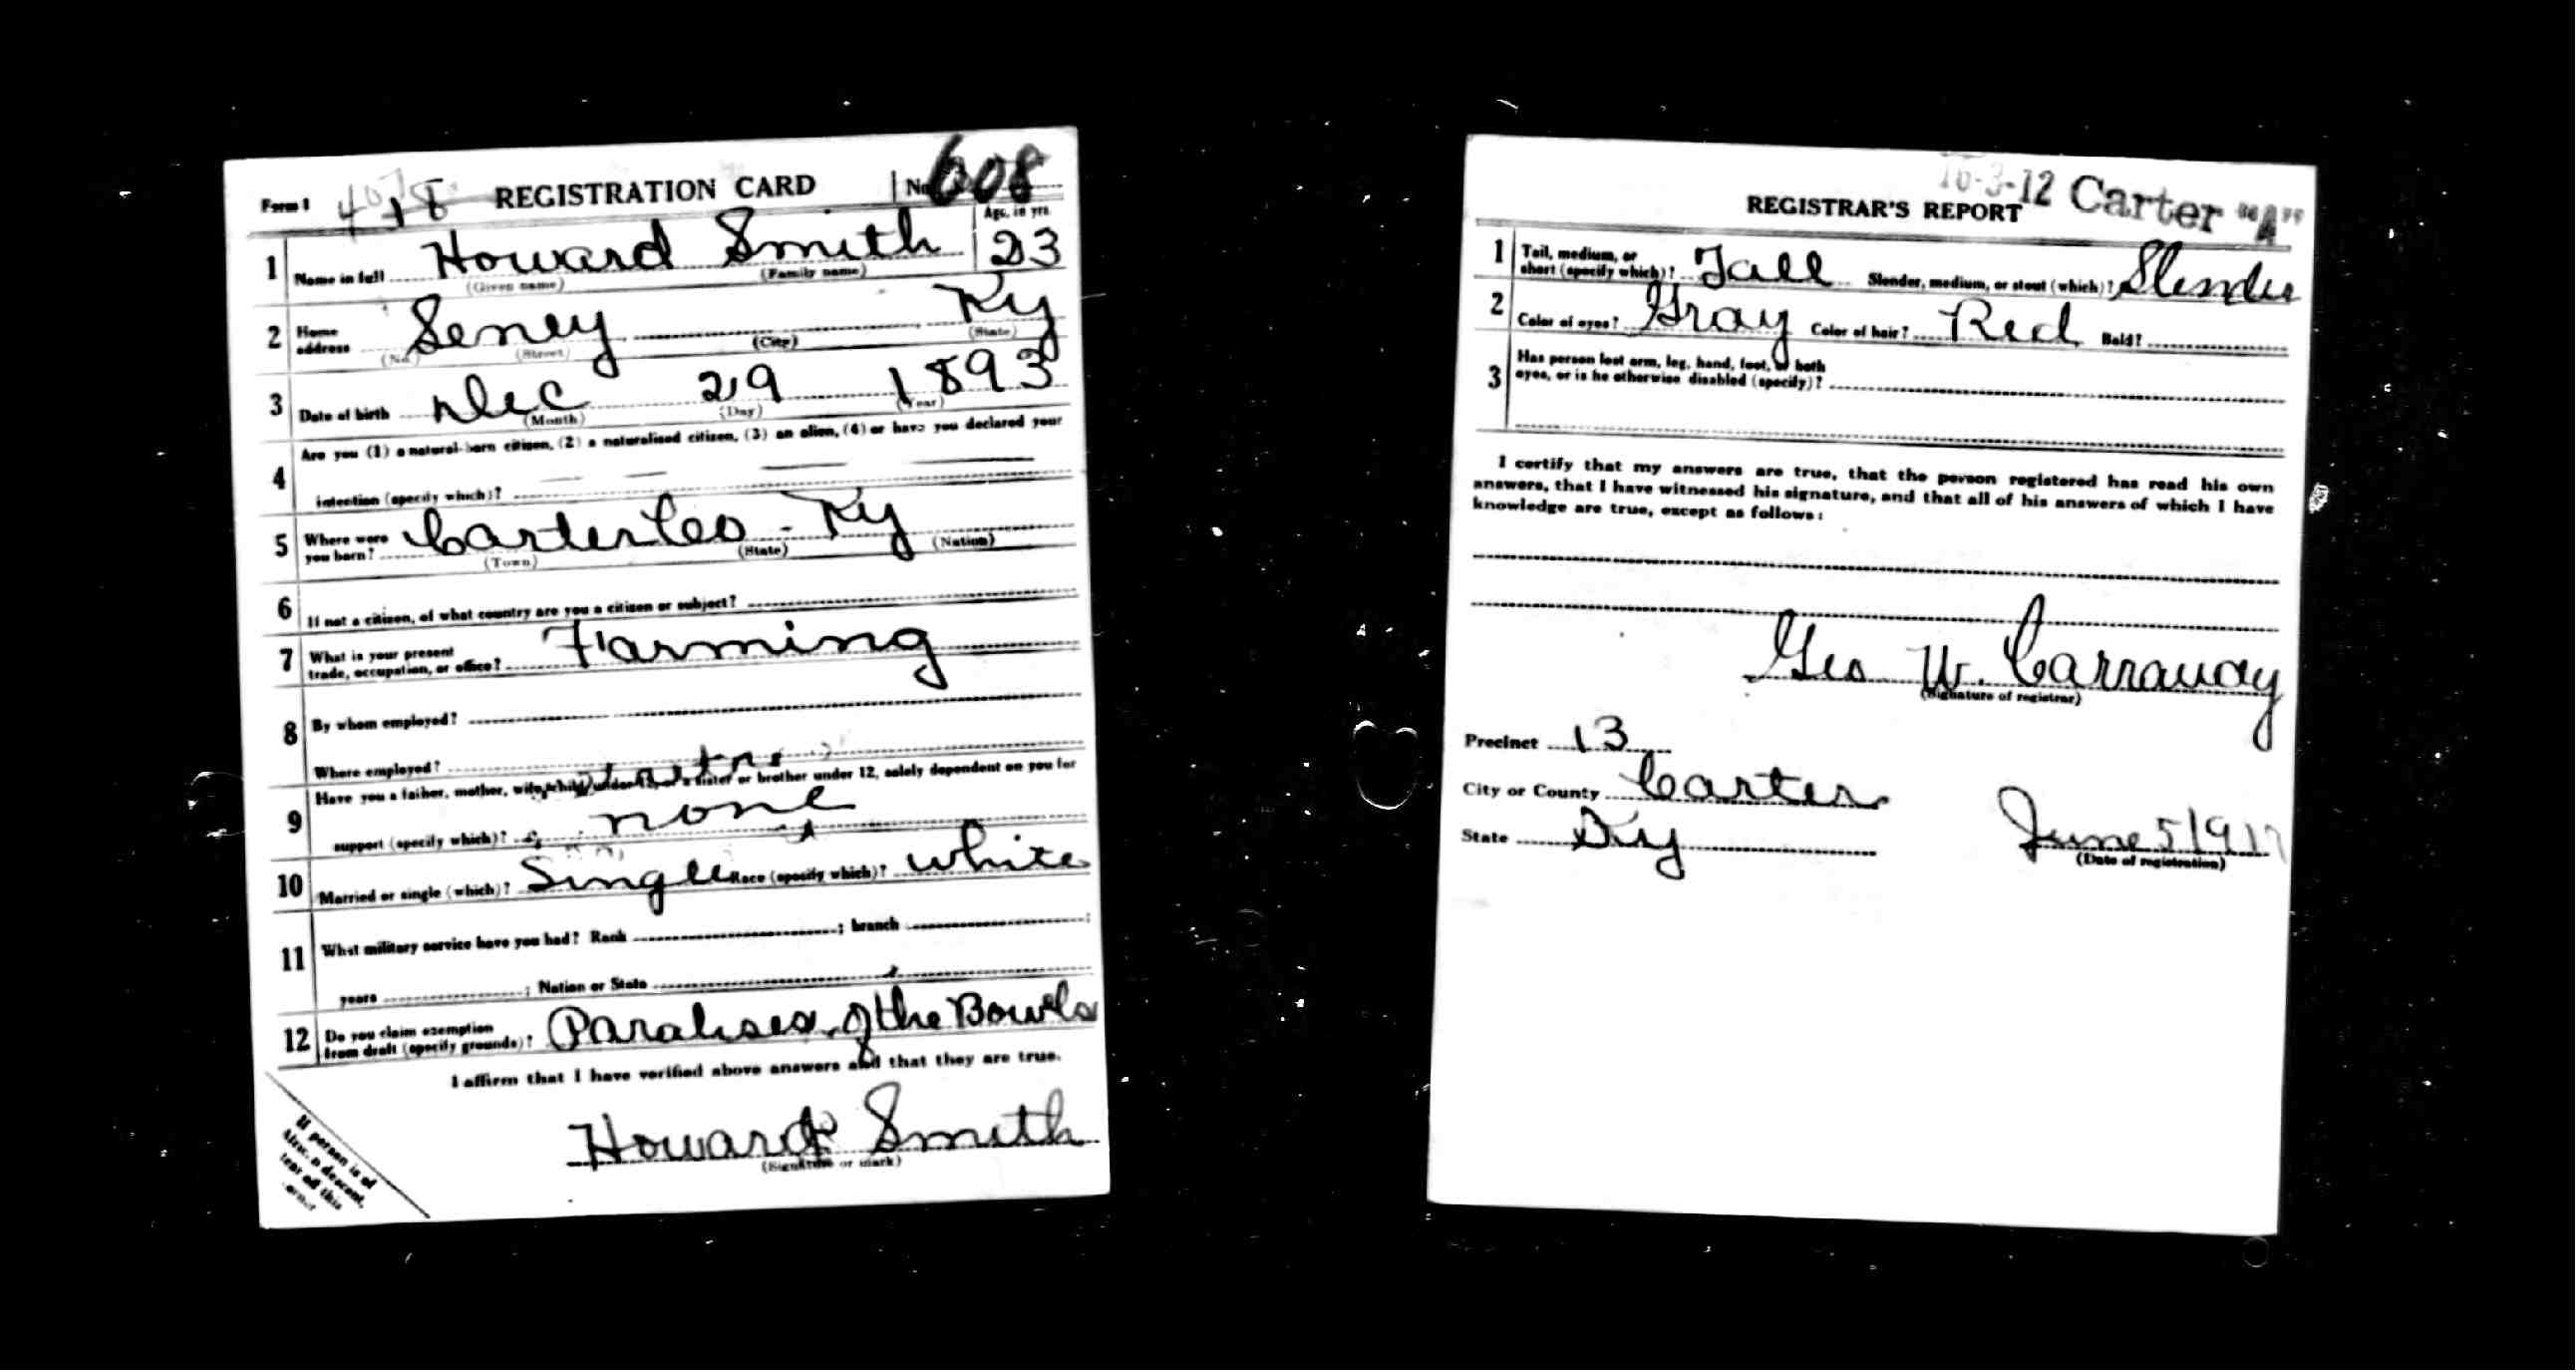 Form 1 REGISTRATION CARD No. 608
Age, in yrs.
1 Name in full Howard Smith 23
(Given name) (Family name)
2 Home address Seney Ky
(No.) (Street) (City) (State)
3 Date of birth Dec 29 1893
(Month) (Day) (Year)
4 Are you (1) a natural-born citizen, (2) a naturalized citizen, (3) an alien, (4) or have you declared your
intention (specify which)?
5 Where were you born? Carter Co - Ky
(Town) (State) (Nation)
6 If not a citizen, of what country are you a citizen or subject?
7 What is your present
trade, occupation, or office? Farming
8 By whom employed?
Where employed?
9 Have you a father, mother, wife, child under 12, or a sister or brother under 12, solely dependent on you for
support (specify which)? none
10 Married or single (which)? Single Race (specify which)? White
11 What military service have you had? Rank ; branch ;
years ; Nation or State
12 Do you claim exemption
from draft (specify grounds)? Paralises of the Bowels
I affirm that I have verified above answers and that they are true.
Howard Smith
(Signature or mark)
If person is of
African descent,
tear off this
corner
16-3-12 Carter "A"
REGISTRAR'S REPORT
1 Tall, medium, or
short (specify which)? Tall Slender, medium, or stout (which)? Slender
2 Color of eyes? Gray Color of hair? Red Bald?
3 Has person lost arm, leg, hand, foot, or both
eyes, or is he otherwise disabled (specify)?
I certify that my answers are true, that the person registered has read his own
answers, that I have witnessed his signature, and that all of his answers of which I have
knowledge are true, except as follows:
Geo W. Carraway
(Signature of registrar)
Precinct 13
City or County Carter
State Ky June 5 1917
(Date of registration)